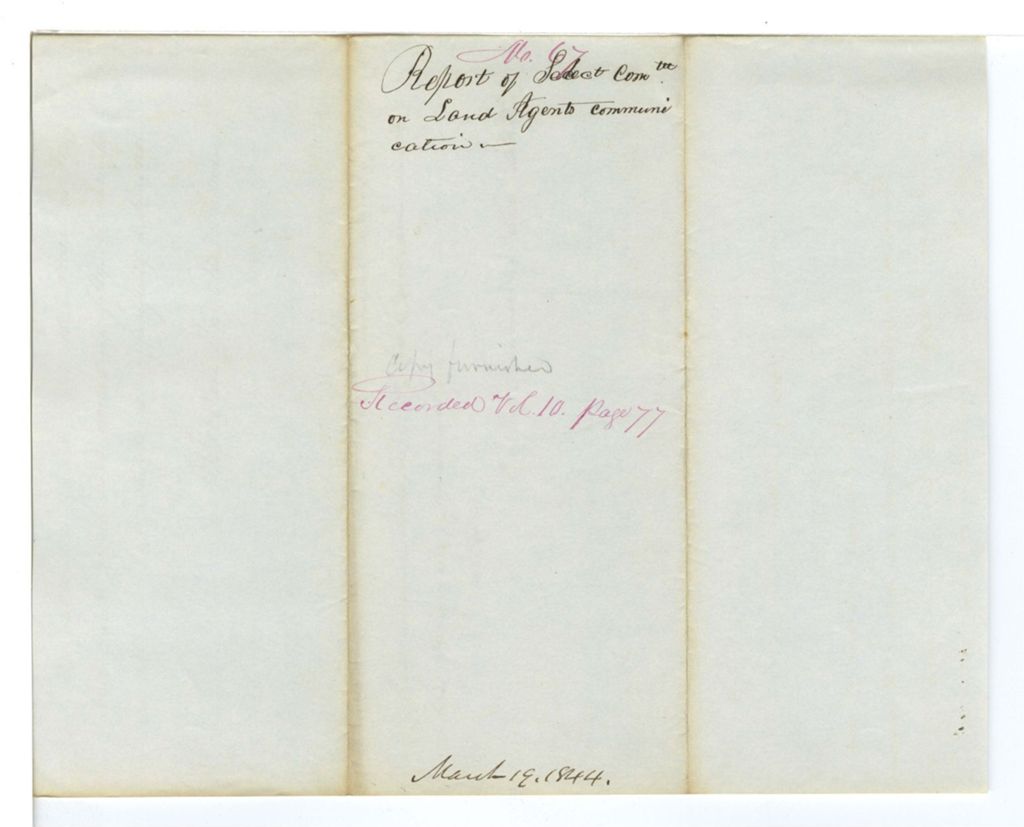 No. 67
Report of Select Com.tee
on Land Agents communi
cation —
Copy furnished
Recorded Vol. 10. Page 77
March 19. 1844.